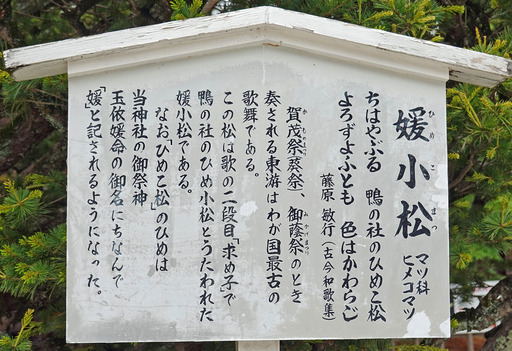 媛小松 マツ科 ヒメコマツ
ひめ こ まつ
ちはやぶる 鴨の社のひめこ松
よろずよふとも 色はかわらじ
藤原 敏行(古今和歌集)
賀茂祭(葵祭)、御蔭祭のとき
奏される東游はわが国最古の
歌舞である。
この松は歌の二段目「求め子」で
鴨の社のひめ小松とうたわれた
媛小松である。
なお「ひめこ松」のひめは
当神社の御祭神
玉依媛命の御名にちなんで
「媛」と記されるようになった。